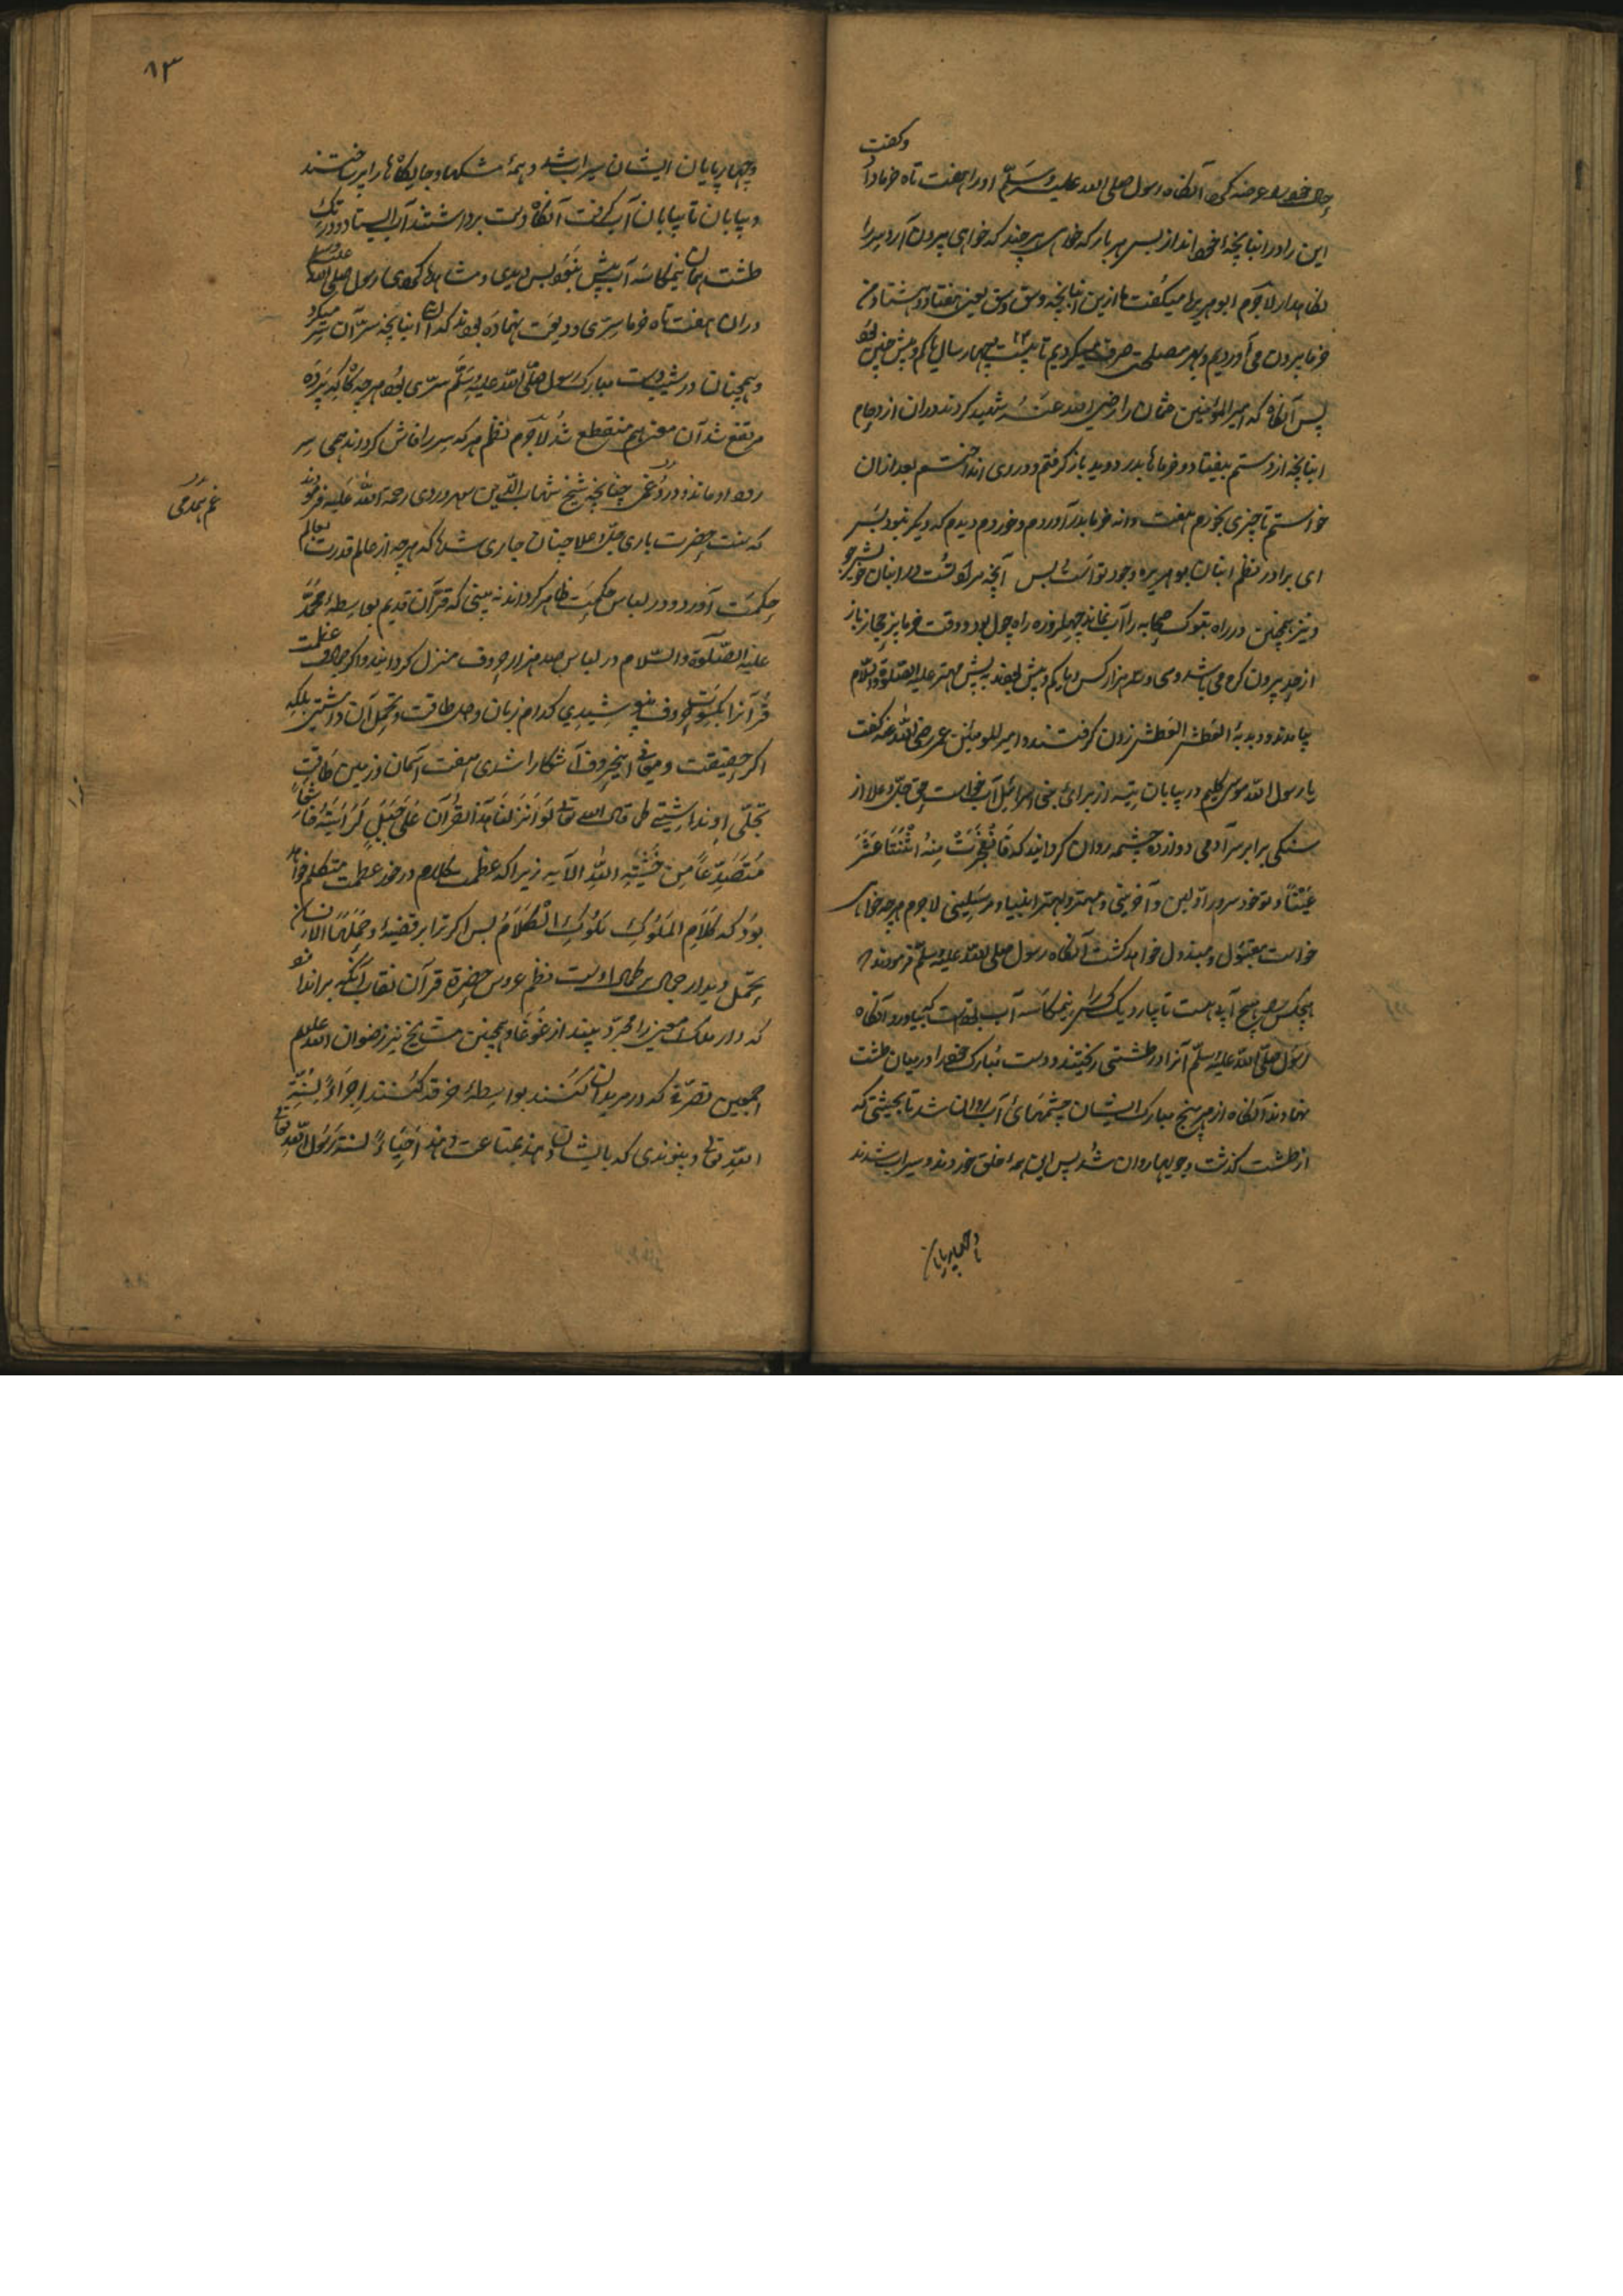 و گفت
حال خود را عرضه کرد آنگاه رسول صلی الله علیه وسلم او را هفت تاه خرما داد
این را در انبانچهٔ خود انداز پس هر بار که خواهی هر چند که خواهی بیرون آر و سر را
نگاهدار لاجرم ابو هریره میگفت ما ازین انبانچه وسق وسق یعنی هفتاد و هشتاد من
خرما بیرون می آوردیم و بهر مصلحت صرف میکردیم تا بیست چهار سال یا کم و بیش چنین بود
پس آنگاه که امیر المؤمنین عثمان را رضی الله عنه شهید کردند در آن ازدحام
انبانچه از دستم بیفتاد و خرماها بدر دوید باز گرفتم و در وی انداختم بعد از آن
خواستم تا چیزی بخورم هفت دانه خرما بدر آوردم و خوردم دیدم که دیگر نبود بسر
ای برادر نظم انبان بو هریره وجود تو است بس آنچه مراد تست در انبان خویش جو
و نیز همچنین در راه تبوک صحابه را آب نماند چهل روزه راه چول بود و وقت خرما پز حجاز باز
از حد بیرون گرم می باشد و سی و سه هزار کس یا کم و بیش بودند به پیش مهتر علیه الصلوة والسلام
بیامدند و دبدبهٔ العطش العطش زدن گرفتند و امیر المؤمنین عمر رضی الله عنه گفت
یا رسول الله موسی کلیم در بیابان تیه از برای بنی اسرائیل آب خواست حق جل و علا از
سنگی برابر سر آدمی دوازده چشمه روان گردانید که فَانْفَجَرَتْ مِنْهُ اثْنَتَا عَشْرَةَ
عَيْنًا و تو خود سرور اولین و آخرینی و مهتر و بهتر انبیاء و مرسلینی لاجرم هر چه خواهی
خواست مقبول و مبذول خواهد گشت آنگاه رسول صلی الله علیه وسلم فرمودند
هیچکس را هیچ آبی هست تا بیارد یک کس را نیمکاسه آب بود بیاورد آنگاه
رسول صلی الله علیه وسلم آنرا در طشتی ریختند و دست مبارک خود را در میان طشت
نهادند آنگاه از هر پنج مبارک ایشان چشمهای آب روان شد تا بحیثی که
از طشت گذشت و جویها روان شد پس این همه خلق خوردند و سیراب شدند
و چهارپایان
۸۳
و چهارپایان ایشان سیراب شد و همهٔ مشکها و جایگاه ها را پر ساختند
و بیابان تا بیابان آب گرفت آنگاه دست برداشتند آب ایستاد و در تک
طشت همان نیمکاسه آب بیش نبود پس دیدی و مشاهده کردی رسول صلی الله علیه وسلم
در آن هفت تاه خرما سری ودیعت نهاده بودند که از آن انبانچه سر آن سر میکرد
و همچنان در شیب دست مبارک رسول صلی الله علیه وسلم سری بود هر چه گاه که پرده
مرتفع شد آن معنی هم منقطع شد لاجرم نظم هر که سر را فاش گرداند همی سر
رود او ماند و درد و غمی چنانچه شیخ شهاب الدین سهروردی رحمة الله علیه فرمودند
غم همدمی
که سنت حضرت باری جل و علا چنان جاری شده که هر چه از عالم قدرت بعالم
حکمت آورد و در لباس حکمت ظاهر گرداند نه بینی که قرآن قدیم بواسطهٔ محمد
علیه الصلوة والسلام در لباس صد هزار حروف منزل گردانید و اگر جمال عظمت
قرآن را بکسوت حروف نپوشیدی کدام زبان و دل طاقت و تحمل آن داشتی بلکه
اگر حقیقت و معانی این حروف آشکارا شدی هفت آسمان و زمین طاقت
تجلی او نداشتی قال الله تعالی لَوْ أَنْزَلْنَا هَذَا الْقُرْآنَ عَلَى جَبَلٍ لَرَأَيْتَهُ خَاشِعًا
مُتَصَدِّعًا مِنْ خَشْيَةِ اللَّهِ الآیه زیرا که عظمت کلام در خور عظمت متکلم خواهد
بود که کلام الملوک ملوک الکلام پس اگر ترا بر قضیهٔ وحملها الانسان
تحمل دیدار جمال بر کمال اوست نظم عروس حضرة قرآن نقاب آنگه بر اندازد
که دار ملک معنی را مجرد بیند از غوغا و همچنین مشایخ نیز رضوان الله علیهم
اجمعین تصرفی که در مریدان کنند بواسطهٔ خرقه کنند اجراءً لسنة
الله تعالی و پیوندی که بایشان دهند بمتابعت دهند احیاءً لسنة رسول الله تعالی